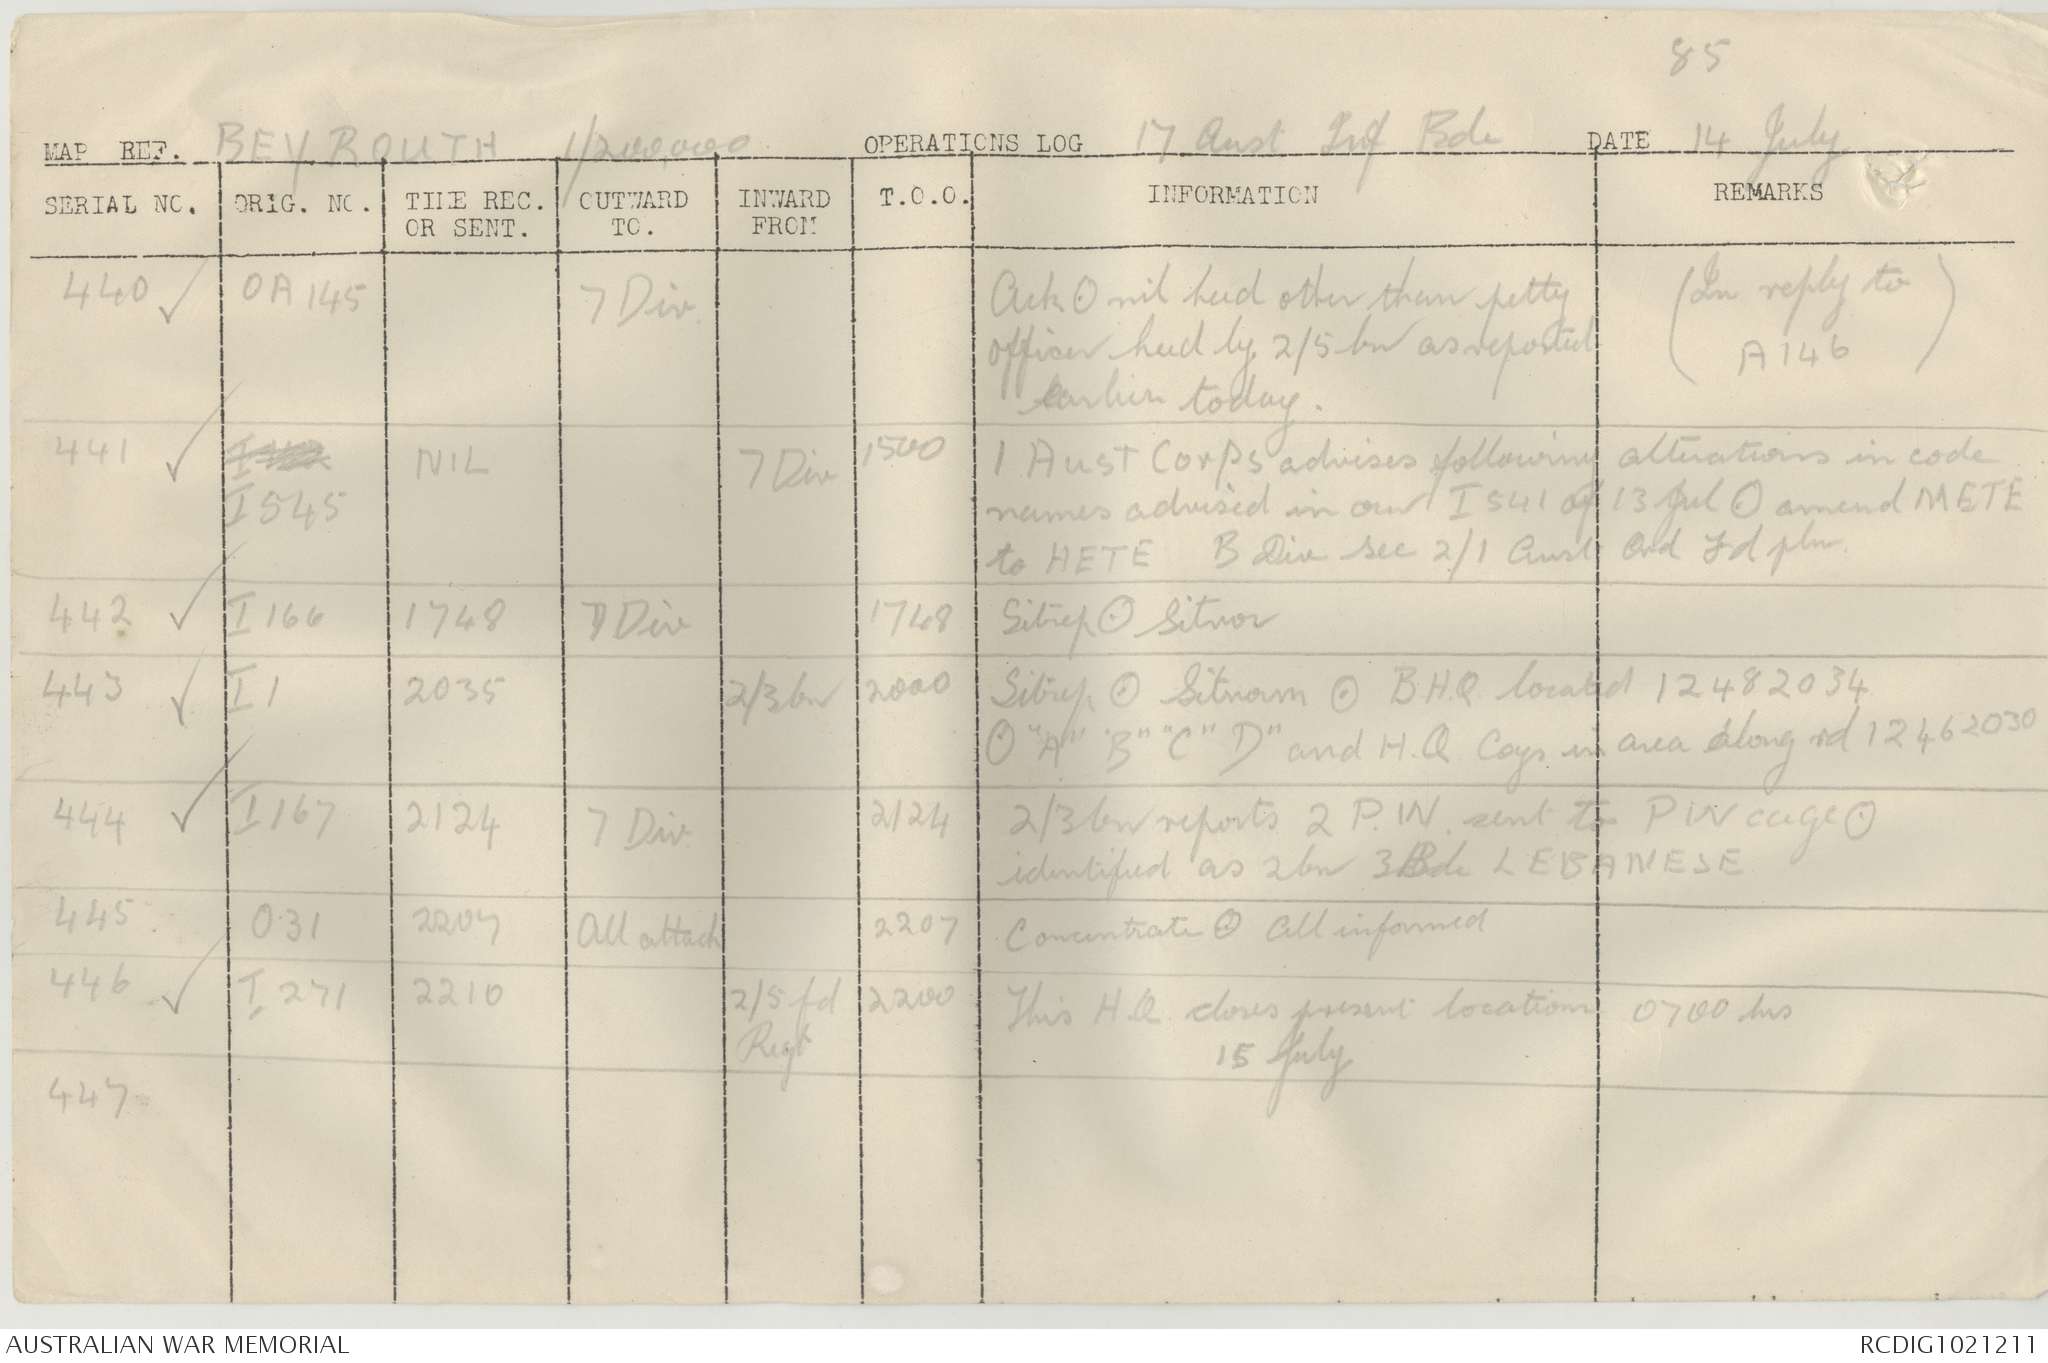 85
MAP REF. BEYROUTH 1/200,000 OPERATIONS LOG 17 Aust Inf Bde DATE 14 July
SERIAL NO. ORIG. NO. TIME REC. OR SENT. OUTWARD TO. INWARD FROM T.O.O. INFORMATION REMARKS
440 OA 145 7 Div Ack ⊙ nil held other than petty (In reply to
officer held by 2/5 bn as reported A146)
earlier today.
441 I 545 NIL 7 Div 1500 1 Aust Corps advises following alterations in code
names advised in our I 541 of 13 Jul ⊙ amend METE
to HETE B Div sec 2/1 Aust Ord Fd pln
442 I 166 1748 7 Div 1748 Sitrep ⊙ Sitnor
443 I 1 2035 2/3 bn 2000 Sitrep ⊙ Sitnorm ⊙ B.H.Q. located 12482034
⊙ "A" "B" "C" D" and H.Q. Coys in area along rd 12462030
444 I 167 2124 7 Div. 2124 2/3 bn reports 2 P.W. sent to PW cage ⊙
identified as 2 bn 3 Bde LEBANESE
445 O31 2207 All attach 2207 Concentrate ⊙ all informed
446 I 271 2210 2/5 fd 2200 This H.Q. closes present location 0700 hrs
Regt 15 July
447
AUSTRALIAN WAR MEMORIAL RCDIG1021211